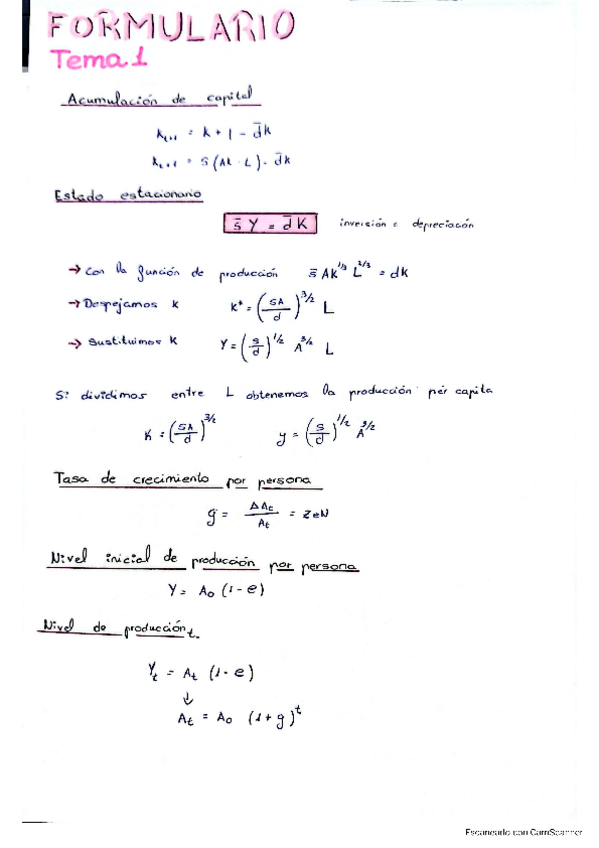 FORMULARIO
Tema 1
Acumulación de capital
K_{t+1} = K + 1 - d̄K
K_{t+1} = S(AK · L) - d̄K
Estado estacionario
s̄ Y = d̄ K inversión = depreciación
→ Con la función de producción s̄ AK^{1/3} L^{2/3} = dK
→ Despejamos K K* = (SA/d)^{3/2} L
→ Sustituimos K Y = (s/d)^{1/2} A^{3/2} L
Si dividimos entre L obtenemos la producción per capita
K = (SA/d)^{3/2} y = (s/d)^{1/2} A^{3/2}
Tasa de crecimiento por persona
g = ΔA_t/A_t = z e N
Nivel inicial de producción por persona
Y = A_0 (1 - e)
Nivel de producción_t.
Y_t = A_t (1 - e)
↓
A_t = A_0 (1 + g)^t
Escaneado con CamScanner